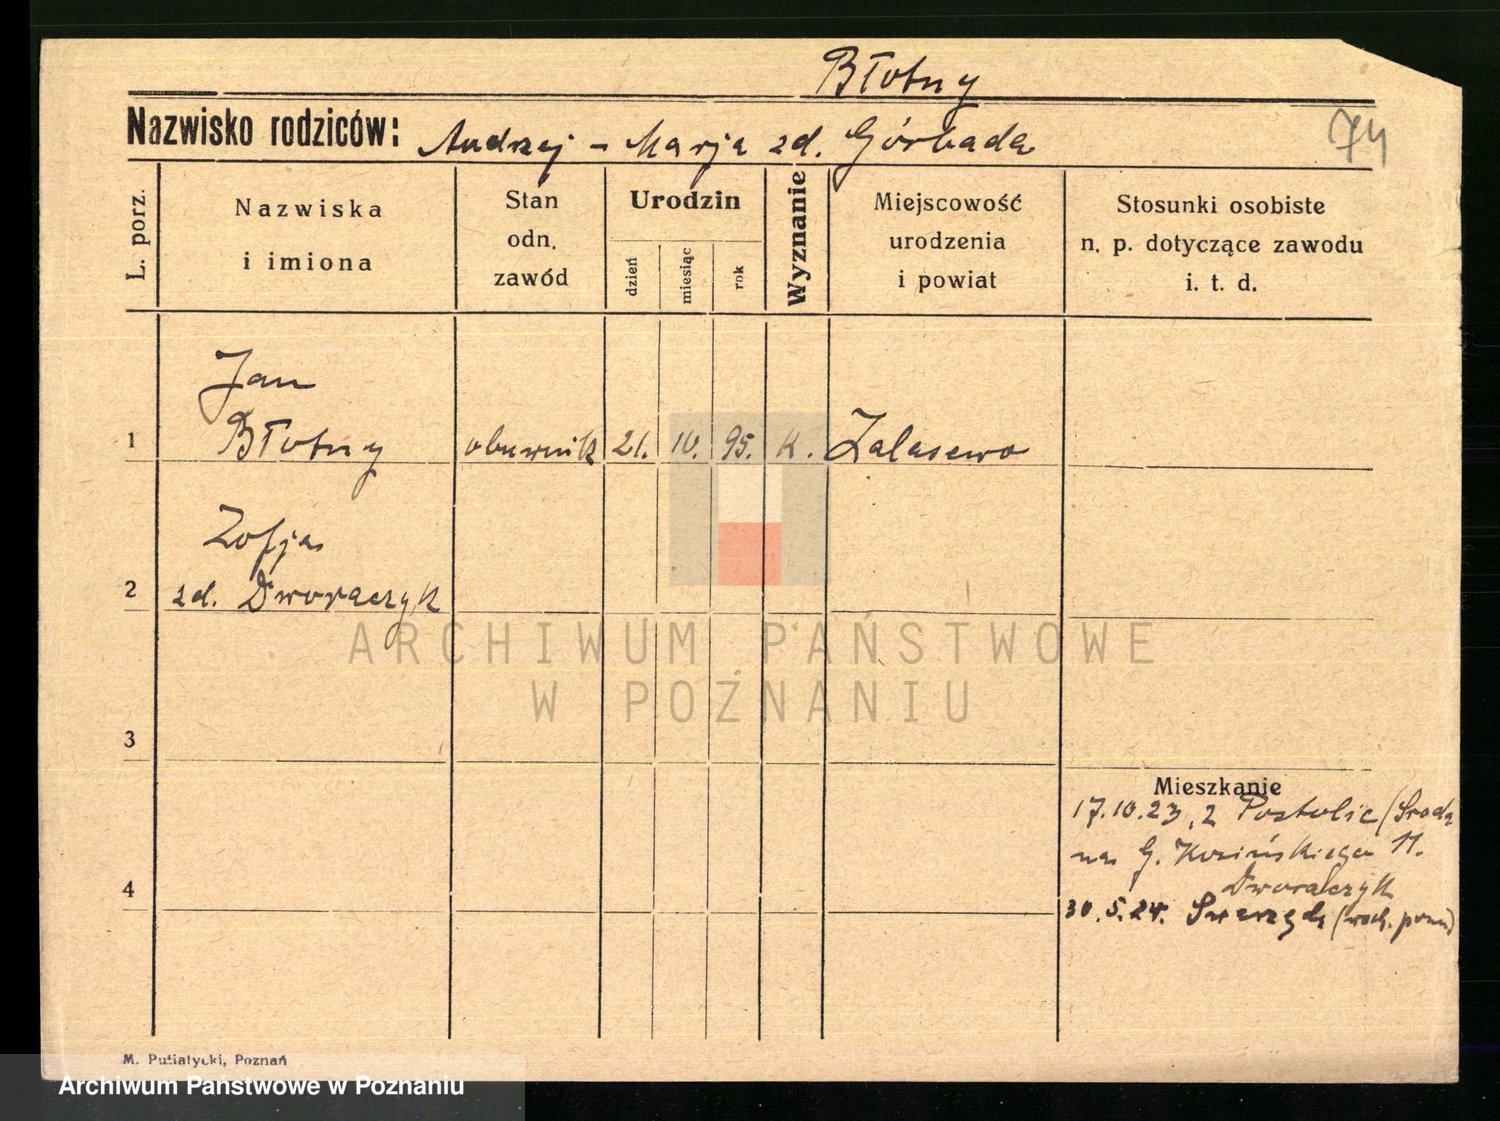 Błotny
Nazwisko rodziców: Andrzej - Marja zd. Górbada
74
L. porz.
Nazwiska
i imiona
Stan
odn.
zawód
Urodzin
dzień
miesiąc
rok
Wyznanie
Miejscowość
urodzenia
i powiat
Stosunki osobiste
n. p. dotyczące zawodu
i. t. d.
Jan
1 Błotny obuwnik 21. 10. 95. k. Zalasewo
Zofja
2 zd. Dworaczyk
ARCHIWUM PAŃSTWOWE
W POZNANIU
3
Mieszkanie
17.10.23, z Postolic (Środa
na G. Kosińskiego 11.
4
Dworaczyk
30.5.24. Swarzędz (wsch. pozn)
M. Putiatycki, Poznań
Archiwum Państwowe w Poznaniu